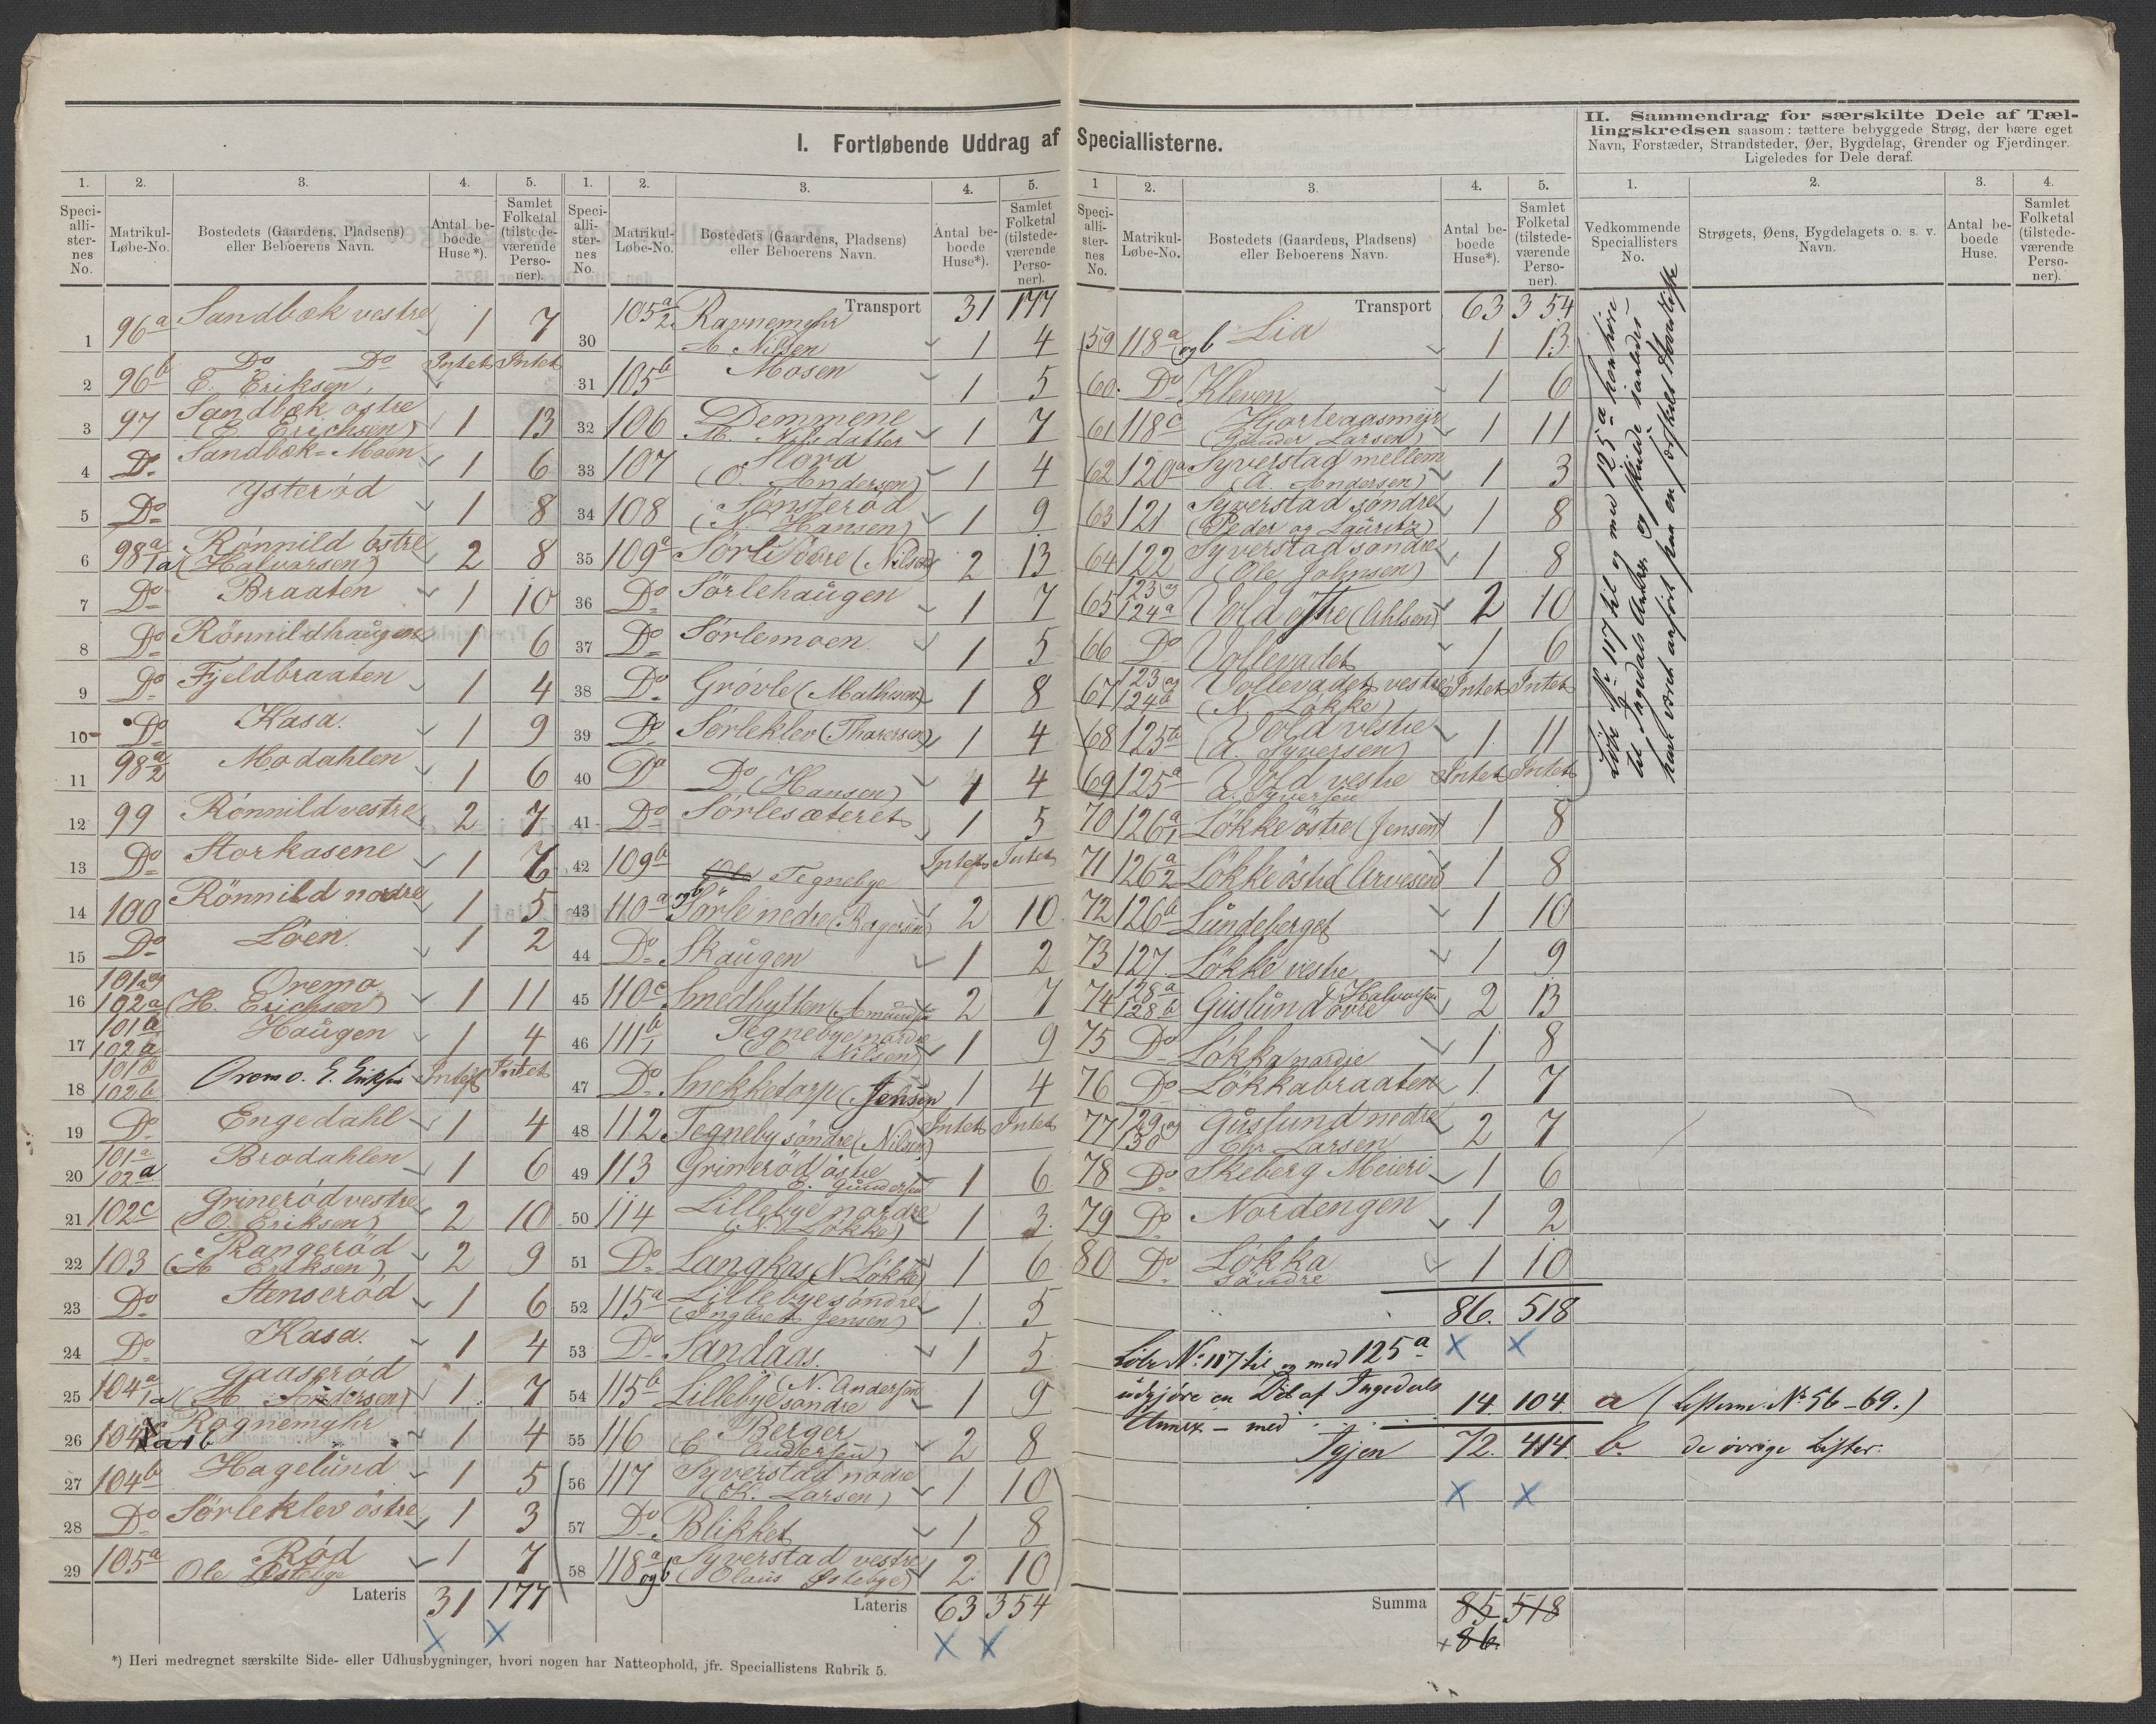 I. Fortløbende Uddrag af Speciallisterne.
II. Sammendrag for særskilte Dele af Tællingskredsen saasom: tættere bebyggede Strøg, der bære eget
Navn, Forstæder, Strandsteder, Øer, Bygdelag, Grender og Fjerdinger.
Ligeledes for Dele deraf.
1. 2. 3. 4. 5.
Speciallisternes No. Matrikul-Løbe-No. Bostedets (Gaardens, Pladsens) eller Beboerens Navn. Antal beboede Huse*). Samlet Folketal (tilstedeværende Personer).
1 96a Sandbæk vestre 1 7
2 96b Do Do E. Eriksen Intet Intet
3 97 Sandbæk østre (E. Erichsen) 1 13
4 Do Sandbæk-Moen 1 6
5 Do Ysterød 1 8
6 98a/1a Rönnild östre (Halvorsen) 2 8
7 Do Braaten 1 10
8 Do Rönnildhaugen 1 6
9 Do Fjeldbraaten 1 4
10 Do Kasa. 1 9
11 98a/2 Modahlen 1 6
12 99 Rönnild vestre 2 7
13 Do Storkasene 1 6
14 100 Rönnild nordre 1 5
15 Do Löen. 1 2
16 101a og 102a Oremo (H. Erichsen) 1 11
17 101b 102a Haugen 1 4
18 101b 102b Oremo. E. Eriksen Intet Intet
19 Do Engedahl 1 4
20 101a 102a Brodahlen 1 6
21 102c Grineröd vestre (O. Eriksen) 2 10
22 103 Rangeröd (A Eriksen) 2 9
23 Do Stenseröd 1 6
24 Do Kasa. 1 4
25 104a/1a Gaaseröd (H. Andersen) 1 7
26 104a Rognemyhr 1 4
27 104b Hagelund 1 5
28 Do Sörleklev östre 1 3
29 105a Röd Ole Östebye 1 7
Lateris 31 177
1. 2. 3. 4. 5.
Speciallisternes No. Matrikul-Løbe-No. Bostedets (Gaardens, Pladsens) eller Beboerens Navn. Antal beboede Huse*). Samlet Folketal (tilstedeværende Personer).
Transport 31 177
30 105a/2 Ravnemyhr A Nilsen 1 4
31 105b Mosen 1 5
32 106 Demmene 1 7
33 107 Stora (O. Andersen) 1 4
34 108 Sønsteröd (N. Hansen) 1 9
35 109a Sörli övre (Nilsen) 2 13
36 Do Sörlehaugen 1 7
37 Do Sörlemoen 1 5
38 Do Grövle (Mathisen) 1 8
39 Do Sörleklev (Thoresen) 1 4
40 Do Do (Hansen) 1 4
41 Do Sörlesæteret 1 5
42 109b Tegnebye Intet Intet
43 110a og b Sörle nedre 2 10
44 Do Skaugen 1 2
45 110c Smedhytten 2 7
46 111b/1 Tegnebye nordre (O Nilsen) 1 9
47 Do Snekketorp (Jensen 1 4
48 112 Tegneby söndre (Nilsen) Intet Intet
49 113 Grineröd östre E. Gundersen 1 6
50 114 Lillebye nordre (N. Lökke) 1 3
51 Do Langkas (N Lökke) 1 6
52 115a Lillebye söndre (Ingbret Jensen) 1 5
53 Do Sandaas. 1 5
54 115b Lillebye söndre (N. Andersen 1 9
55 116 Berger (C Andersen) 2 8
56 117 Syverstad nodre (K. Larsen) 1 10
57 Do Blikket 1 8
58 118a og b Syverstad vestre (Olaus Østebye) 2 10
Lateris 63 354
1 2. 3. 4. 5.
Speciallisternes No. Matrikul-Løbe-No. Bostedets (Gaardens, Pladsens) eller Beboerens Navn. Antal beboede Huse*). Samlet Folketal (tilstedeværende Personer).
Transport 63 354
59 118a og b Lia 1 13
60. Do Kleven 1 6
61 118c Hjorteaasmyr (Gunder Larsen) 1 11
62 120a Syverstad mellem (A. Andersen) 1 3
63 121 Syverstad söndre (Peder og Lauritz) 1 8
64 122 Syverstad söndre (Ole Johnsen) 1 8
65 123 og 124a Vold östre (Ahlsen) 2 10
66 Do Vollevadet 1 6
67 123 og 124b Vollevadet vestre (N. Lökke) Intet Intet
68 125b Vold vestre (A. Syversen) 1 11
69 125a Vold vestre A. Syversen Intet Intet
70 126a/1 Lökke östre (Jensen) 1 8
71 126a/2 Lökke östre (Arvesen) 1 8
72 126b Lundeberget 1 10
73 127 Lökke vestre 1 9
74 128a 128b Guslund övre (Halvorsen 2 13
75 Do Lökka nordre 1 8
76 Do Lökkabraaten 1 7
77 129 og 130 Guslund nedre Chr. Larsen 2 7
78 Do Skeberg Meieri 1 6
79 Do Nordengen 1 2
80 Do Lökka Söndre 1 10
86. 518
Löbe No. 117 til og med 125a
udgjöre en Del af Ingedals
Annex - med 14 104 a (Listerne No 56-69.)
Igjen 72. 414. b. de övrige Lister.
Summa 85 518
+ 86.
1. 2. 3. 4.
Vedkommende Speciallisters No. Strøgets, Øens, Bygdelagets o. s. v. Navn. Antal beboede Huse. Samlet Folketal (tilstedeværende Personer).
Löbe No. 117 til og med 125a henhöre
til Ingedals Annex og skulde saaledes
have været anfört paa en særskilt Hovedliste
*) Heri medregnet særskilte Side- eller Udhusbygninger, hvori nogen har Natteophold, jfr. Speciallistens Rubrik 5.